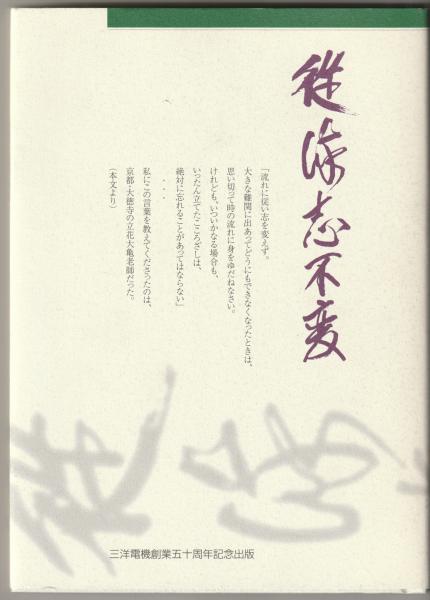 従流志不変
「流れに従い志を変えず。
大きな難関に出あってどうにもできなくなったときは、
思い切って時の流れに身をゆだねなさい。
けれども、いついかなる場合も、
いったん立てたこころざしは、
絶対に忘れることがあってはならない」
・・・
私にこの言葉を教えてくださったのは、
京都・大徳寺の立花大亀老師だった。
(本文より)
三洋電機創業五十周年記念出版